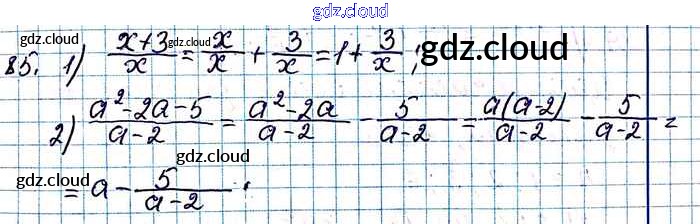 gdz.cloud
gdz.cloud
85. 1) (x+3)/x gdz.cloud = x/x + 3/x = 1 + 3/x ; gdz.cloud
2) (a²-2a-5)/(a-2) = (a²-2a)/(a-2) - 5/(a-2) = a(a-2)/(a-2) - 5/(a-2) =
gdz.cloud
gdz.cloud
= a - 5/(a-2) .
gdz.cloud